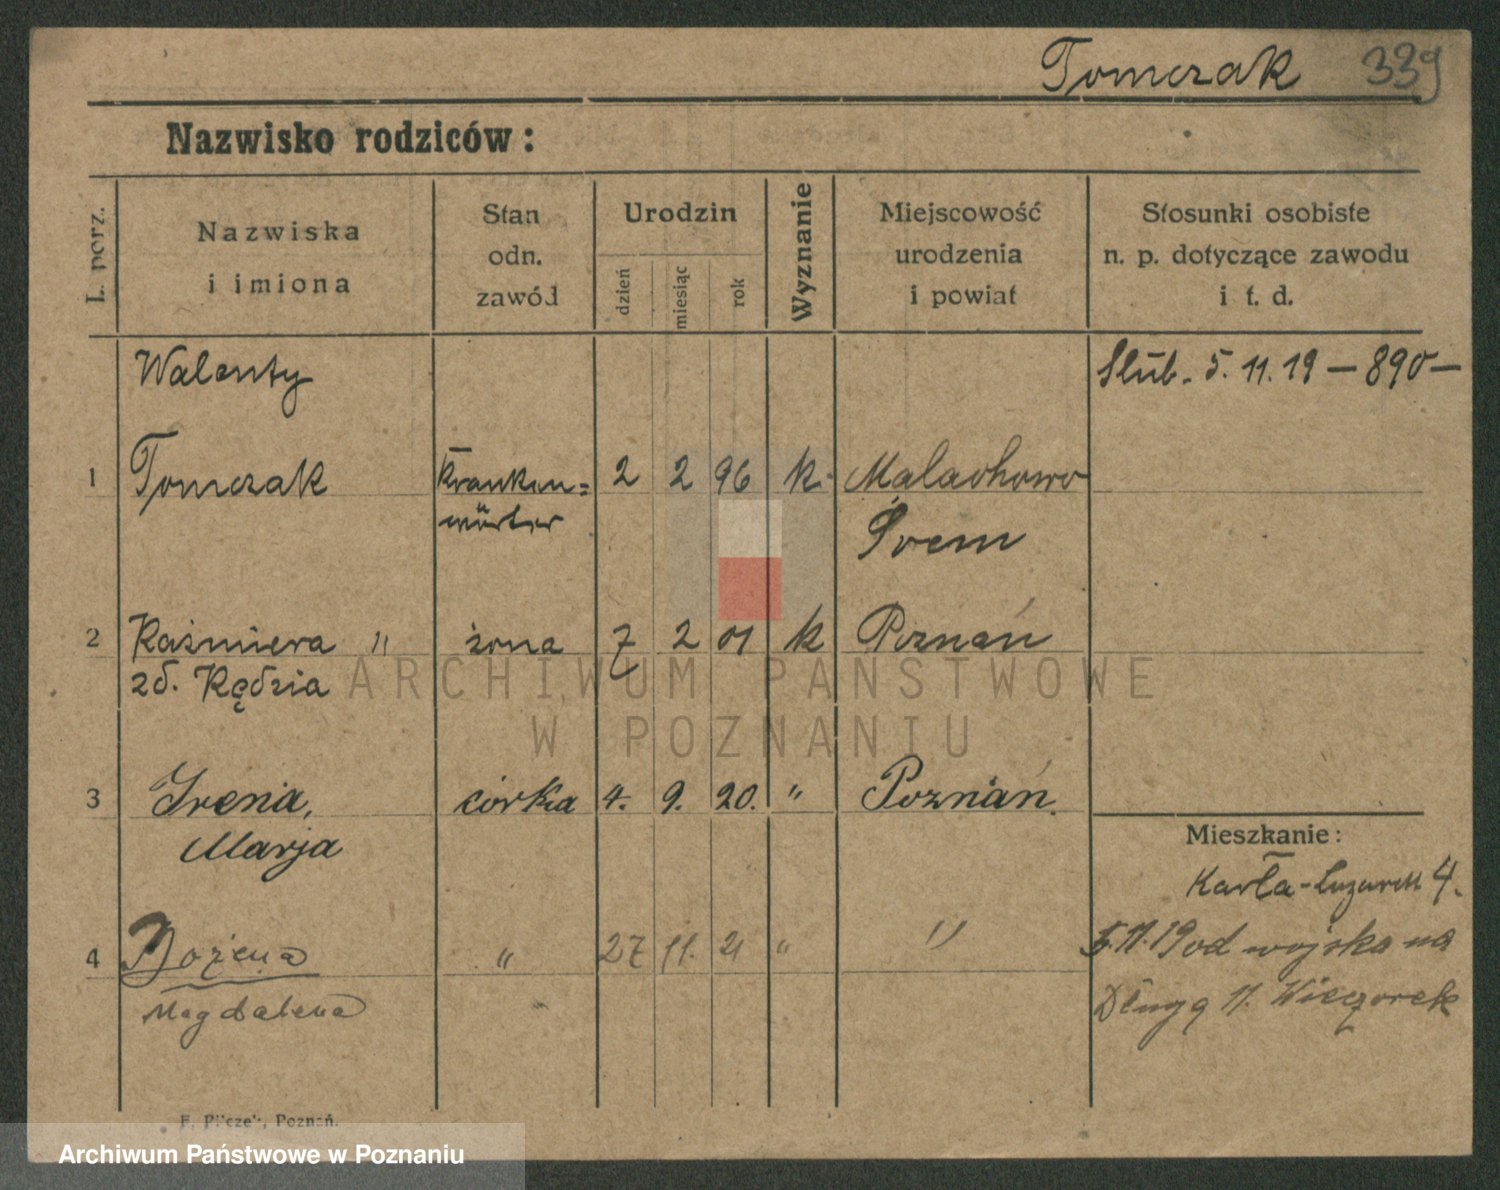 Tomczak 339
Nazwisko rodziców:
L. porz.
Nazwiska
i imiona
Stan
odn.
zawód
Urodzin
dzień
miesiąc
rok
Wyznanie
Miejscowość
urodzenia
i powiat
Stosunki osobiste
n. p. dotyczące zawodu
i t. d.
Walenty
Ślub. 5. 11. 19 — 890 —
1 Tomczak Kranken= 2 2 96 k. Malachowo
wärter Śrem
2 Kaźmiera " żona 7 2 01 k Poznań
zd. Kędzia
3 Irena, córka 4. 9. 20. " Poznań.
Marja
Mieszkanie:
Karła- 4.
4 Bożena " 27 11. 21 " "
5.11.19 od wojska na
Magdalena
Długą 11. Wieczorek
F. Pilczek, Poznań.
ARCHIWUM PAŃSTWOWE
W POZNANIU
Archiwum Państwowe w Poznaniu